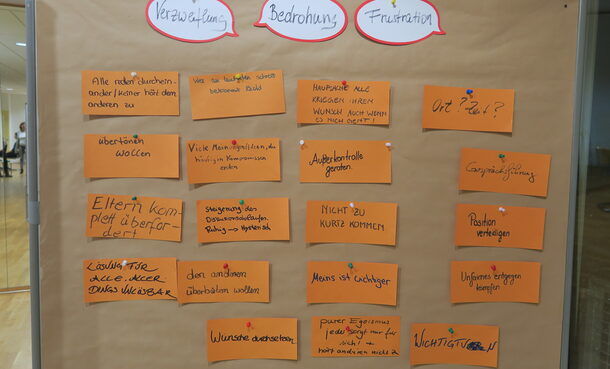 Verzweiflung
Bedrohung
Frustration
Alle reden durchein-
ander/Keiner hört dem
anderen zu
Wer am lautesten schreit
bekommt Recht
HAUPTSACHE ALLE
KRIEGEN IHREN
WUNSCH AUCH WENN
ES NICHT GEHT!
Ort? Zeit?
übertönen
wollen
Viele Meinungen/Ideen, die
häufig in Kompromissen
enden
Außerkontrolle
geraten.
Gesprächsführung
Eltern kom
plett überfor-
dert
Steigerung des
Diskussionsablaufes.
Ruhig → Hysterisch
NICHT ZU
KURTZ KOMMEN
Position
verteidigen
LÖSUNG FÜR
ALLE. ALLER
DINGS UNLÖSBAR
den anderen
überbieten wollen
Meins ist wichtiger
Unfaires entgegen
kämpfen
Wünsche durchsetzen
purer Egoismus
jeder sorgt nur für
sich! +
hört anderen nicht z
WICHTIGTUN